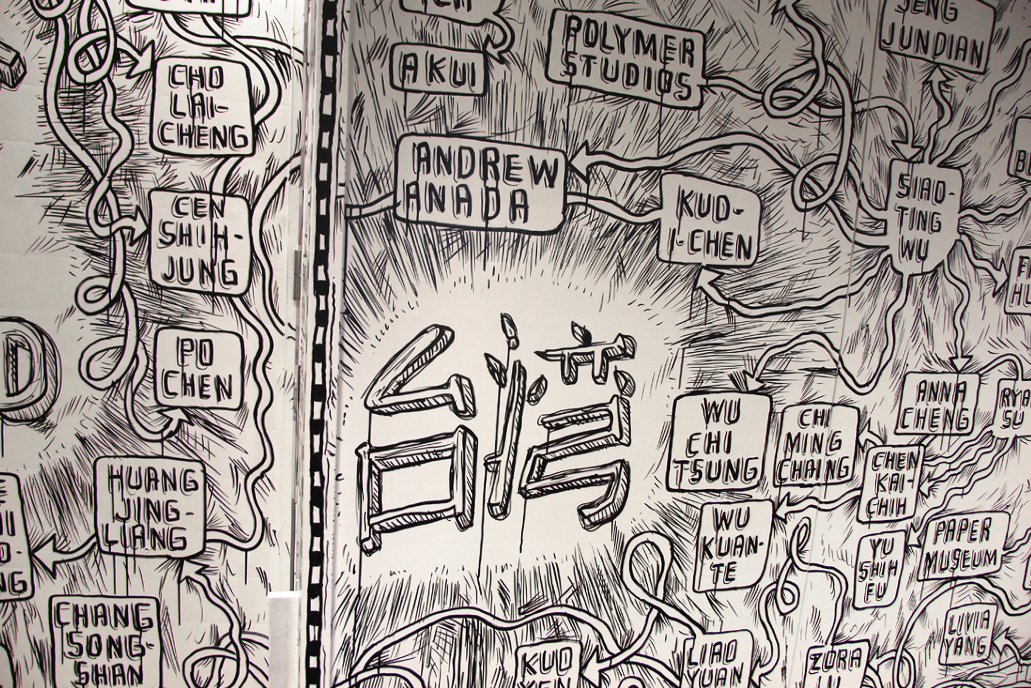 CHO
LAI-
CHENG
CEN
SHIH-
JUNG
PO
CHEN
D
HUANG
JING-
LIANG
CHANG
SONG-
SHAN
AKUI
POLYMER
STUDIOS
JENG
JUNDIAN
ANDREW
ANADA
KUO-
I-CHEN
SIAO-
TING
WU
台灣
WU
CHI
TSUNG
CHI
MING
CHANG
ANNA
CHENG
CHEN
KAI-
CHIH
WU
KUAN-
TE
YU
SHIH
FU
PAPER
MUSEUM
LIVIA
YANG
KUO
LIAO
YUAN
ZORA